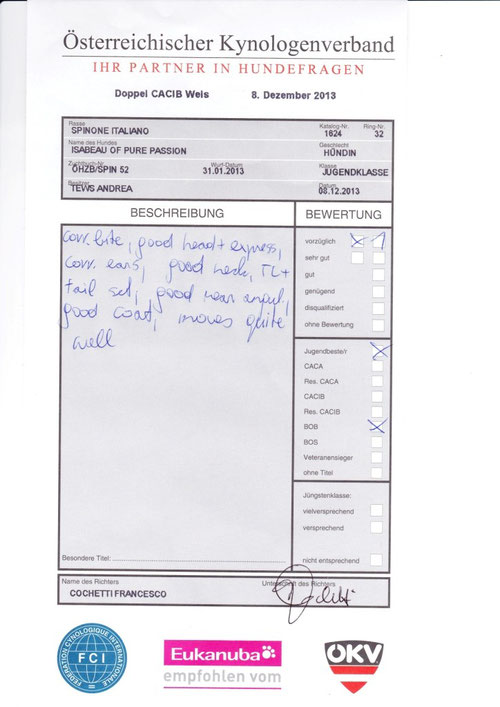 Österreichischer Kynologenverband
IHR PARTNER IN HUNDEFRAGEN
Doppel CACIB Wels 8. Dezember 2013
Rasse Katalog-Nr. Ring-Nr.
SPINONE ITALIANO 1624 32
Name des Hundes Geschlecht
ISABEAU OF PURE PASSION HÜNDIN
Zuchtbuch-Nr. Wurf-Datum Klasse
ÖHZB/SPIN 52 31.01.2013 JUGENDKLASSE
Besitzer Datum
TEWS ANDREA 08.12.2013
BESCHREIBUNG
corr. bite, good head + express,
corr. ears, good neck, TL +
tail set, good rear angul.,
good coat, moves quite
well
Besondere Titel:
BEWERTUNG
vorzüglich X 1
sehr gut
gut
genügend
disqualifiziert
ohne Bewertung
Jugendbeste/r X
CACA
Res. CACA
CACIB
Res. CACIB
BOB X
BOS
Veteranensieger
ohne Titel
Jüngstenklasse:
vielversprechend
versprechend
nicht entsprechend
Name des Richters Unterschrift des Richters
COCHETTI FRANCESCO
FEDERATION CYNOLOGIQUE INTERNATIONALE
FCI
Eukanuba
empfohlen vom
ÖKV